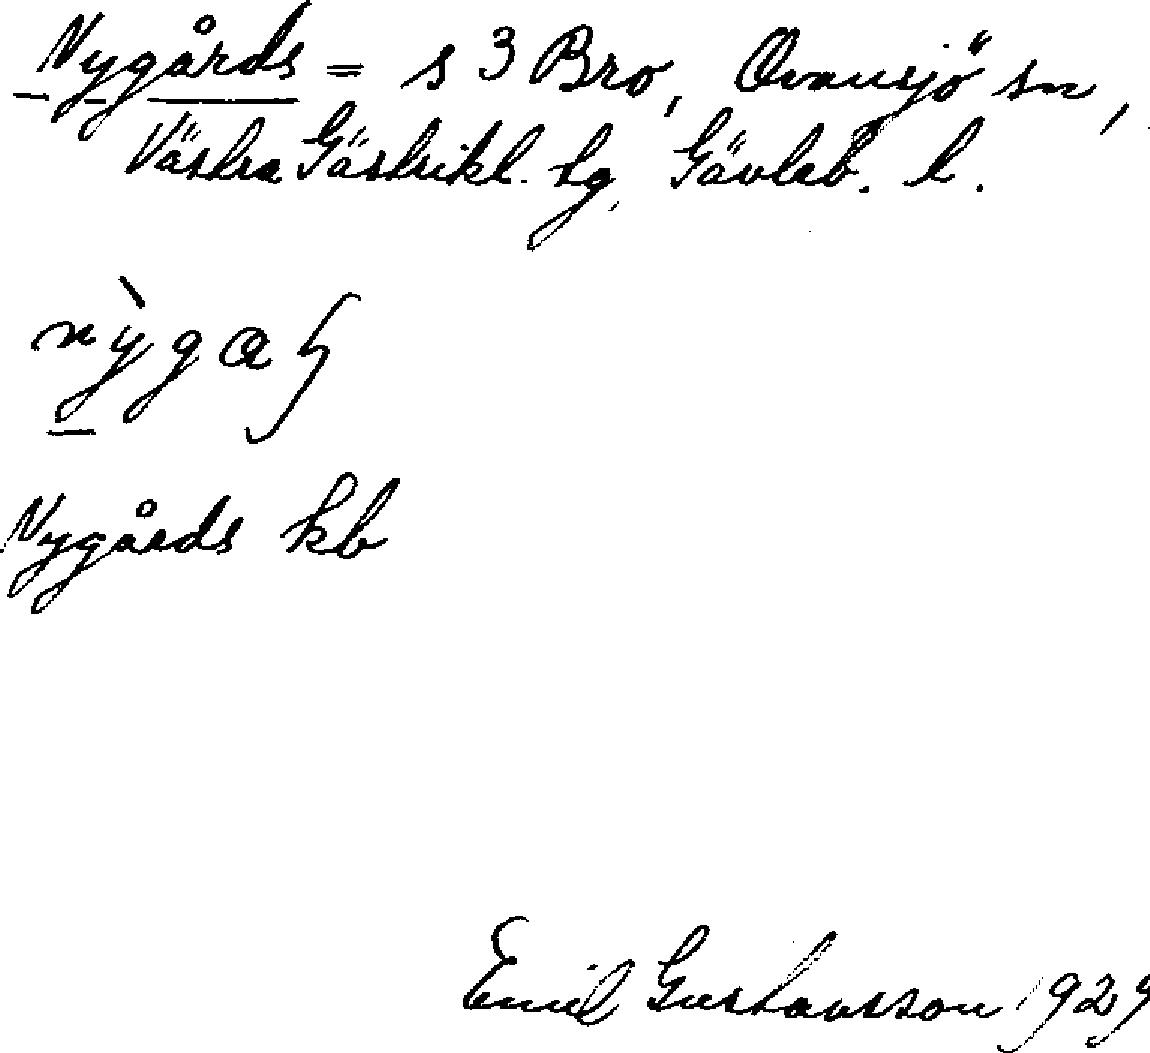 Nygårds = s 3 Bro, Ovansjö sn,
Västra Gästrikl. tg, Gävleb. l.
nỳgaʂ
Nygårds kb
Emil Gustavsson 1929